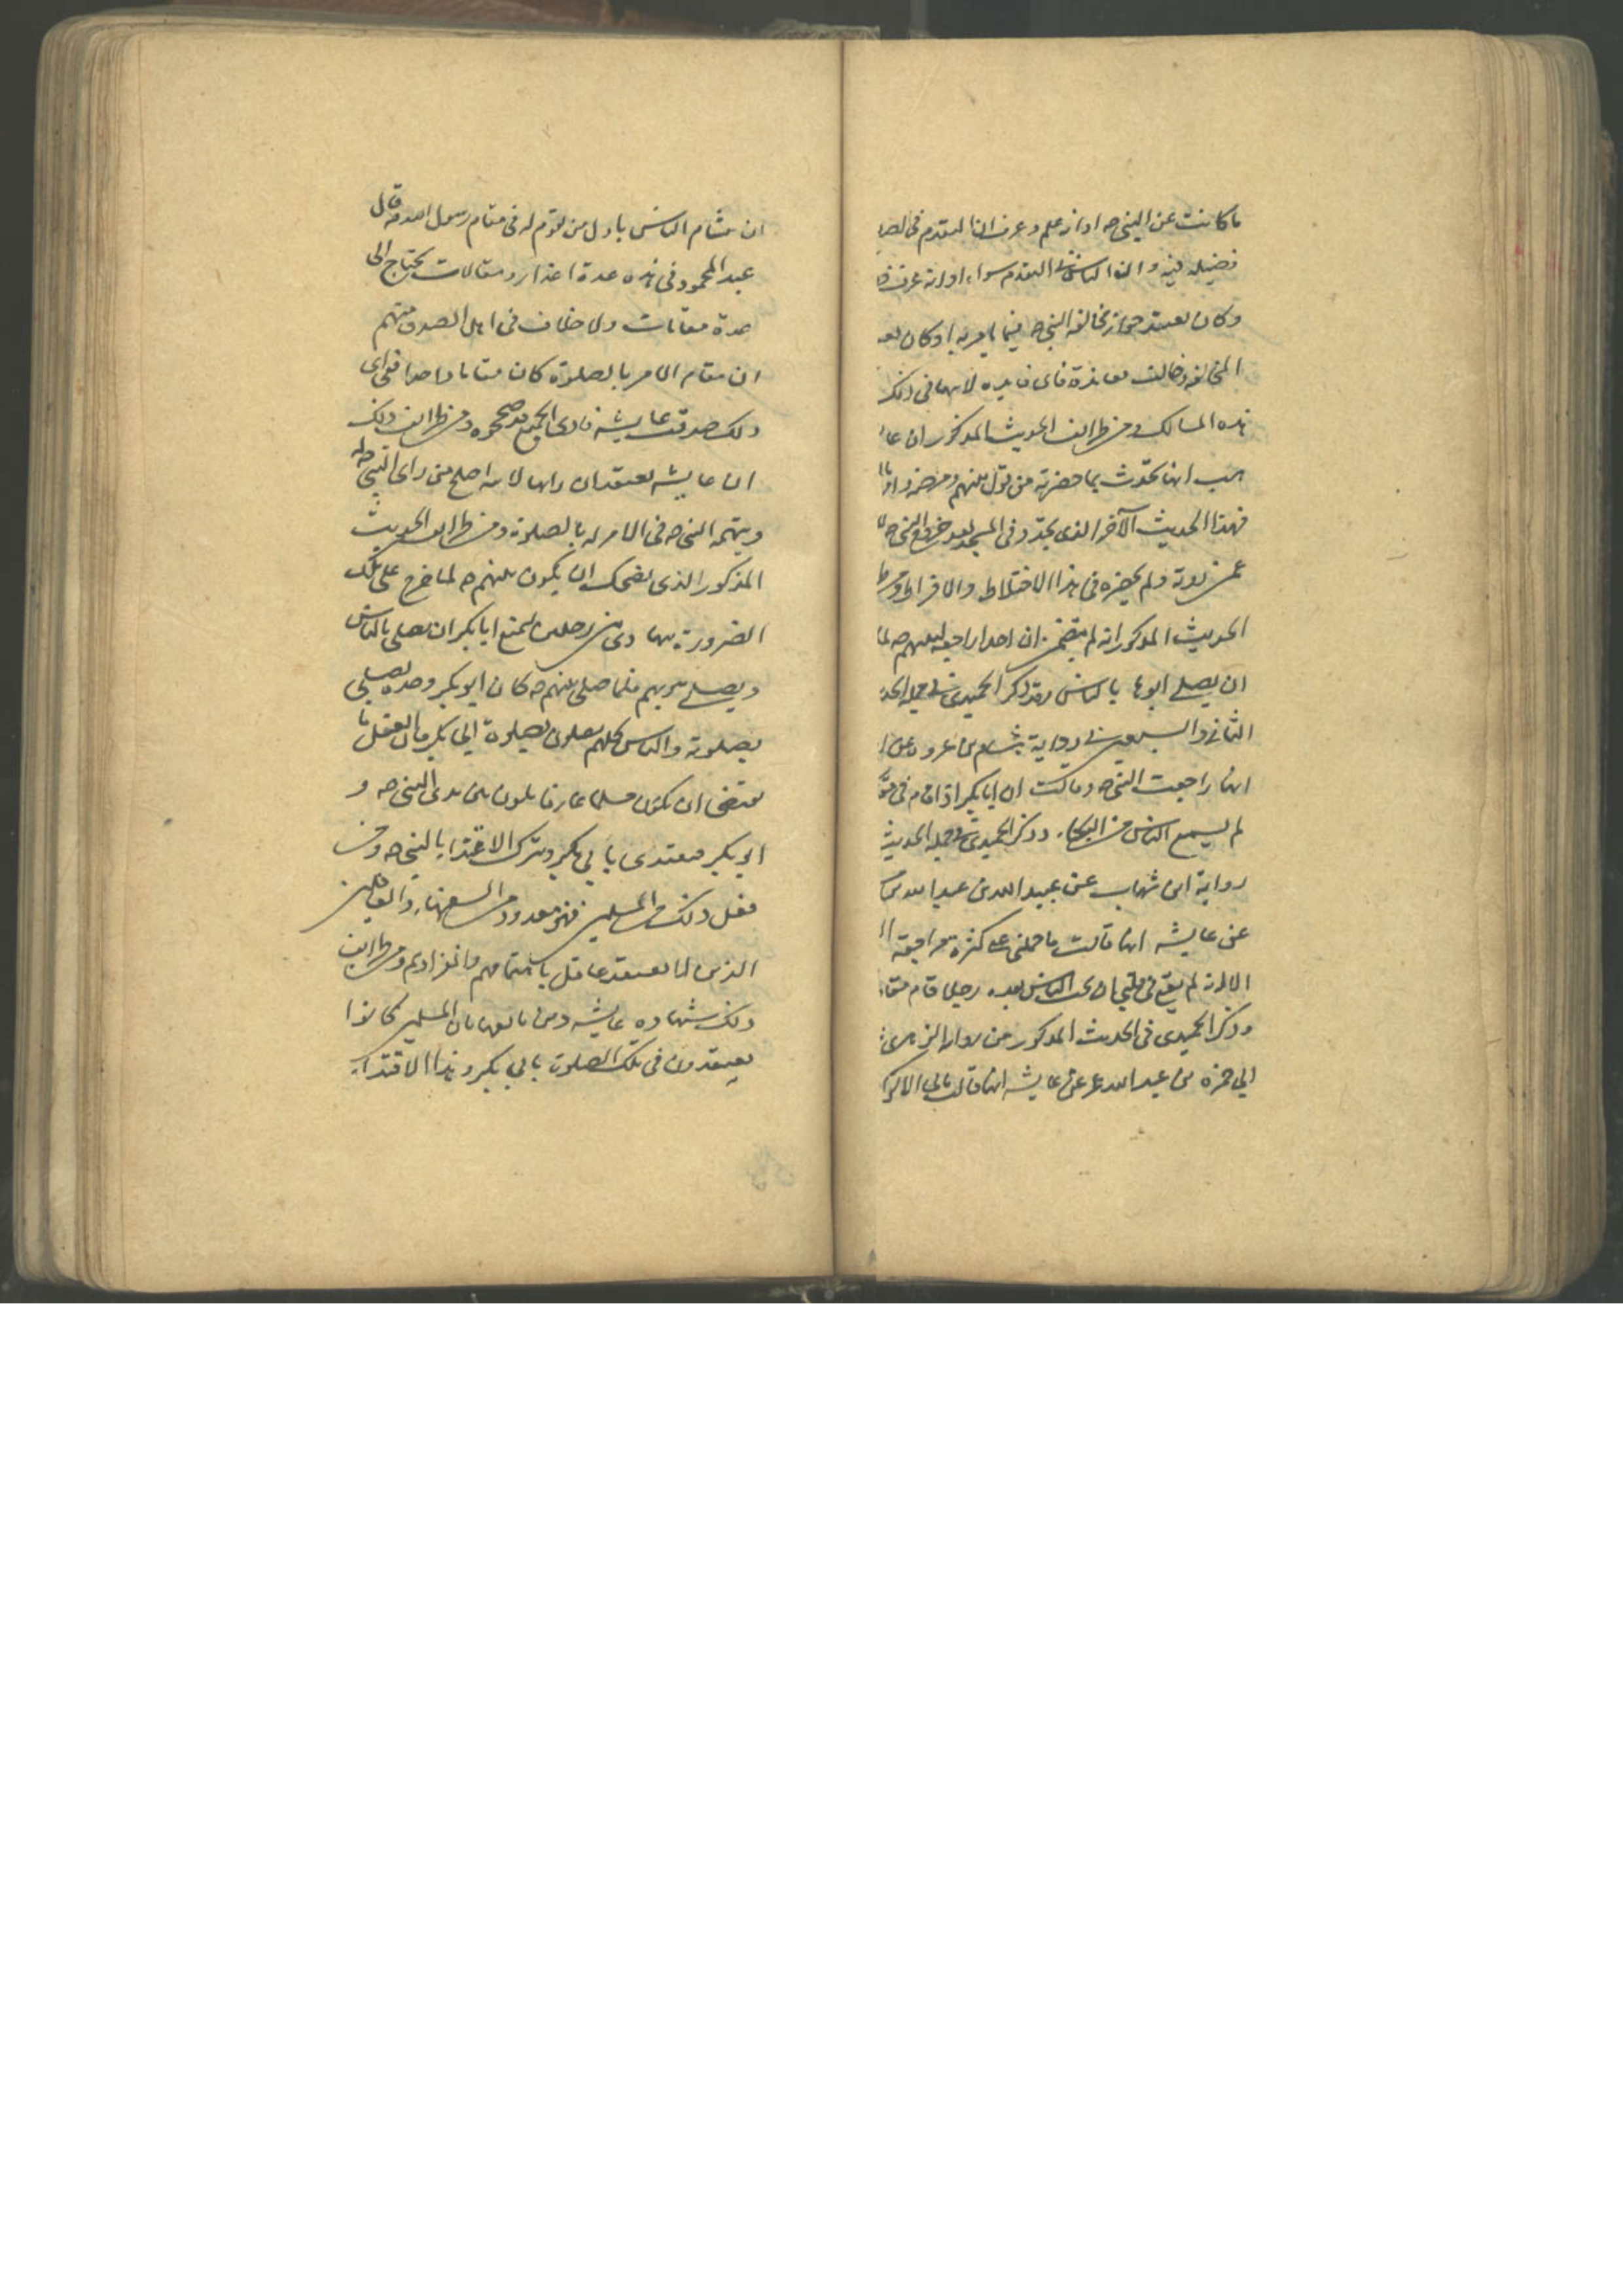 ما كانت عن النبي ص او انه علم وعرف ان التقدم في الصلا
فضيلة فيه وان الناس في التقدم سواء او انه عرف
وكان يعتقد جواز مخالفة النبي ص فيما يامر به او كان
المخالفة وخالف معاندة فاى فايده لابيها في ذلك
هذه المسالك ومن طرايف الحديث المذكور ان عا
هب انها تحدث بما حضرته من قول بلنهم ومرضه
فهذا الحديث الآخر الذى تجدد في المسجد بعد خروج النبي ص
عمن روته ولم يحضره في هذا الاختلاط والافراط ومن
الحديث المذكور انه لم يتضمن ان احدا راجع نبيهم ص لما
ان يصلى ابوها بالناس وقد ذكر الحميدى في جملة الحد
الثاني والسبعين في رواية هشام بن عروه عن
انها راجعت النبي ص وقالت ان ابا بكر اذا قام في مقا
لم يسمع الناس من البكاء وذكر الحميدى في جملة الحديث
رواية ابن شهاب عن عبيد الله بن عبد الله
عن عايشه انها قالت ما حملني على كثرة مراجعته
الا انه لم يقع في قلبي ان يحب الناس بعده رجلا قام مقا
وذكر الحميدى في الحديث المذكور من رواية الزهرى
ابي حمزه بن عبد الله عن عايشه انها قالت
ان يتشام الناس باول من يقوم له في مقام رسول الله ص قال
عبد المحمود في هذه عدة اعذار ومقالات يحتاج الى
عدة مقامات ولا خلاف في اهل الصدق منهم
ان مقام الامر بالصلوة كان مقاما واحدا ففي اى
ذلك صدقت عايشه فادى الجميع قد صححوه ومن طرايف ذلك
ان عايشه تعتقد ان رايها لامته اصلح من راى النبي ص
ويتهمه النبي ص في الامر له بالصلوة ومن طرايف الحديث
المذكور الذى يضحك ان يكون نبيهم ص لما خرج على تلك
الضرورة يهادى بين رجلين ليمنع ابا بكر ان يصلى بالناس
ويصلى هو بهم فلما صلى نبيهم ص كان ابو بكر وحده يصلى
بصلوته والناس كلهم يصلون بصلوة ابي بكر فان العقل
يقتضى ان يكون مسلما عارفا يكون بين يدى النبي ص و
ابو بكر فيقتدى بابي بكر ويترك الاقتدا بالنبي ص ومن
فعل ذلك من المسلمين فهو معدود من السفهاء والغافلين
الذين لا يعتقد عاقل باسلامهم وانفرادهم ومن طرايف
ذلك شهاده عايشه ومن تابعها بان المسلمين كانوا
يعتقدون في تلك الصلوة بابي بكر وهذا الاقتداء